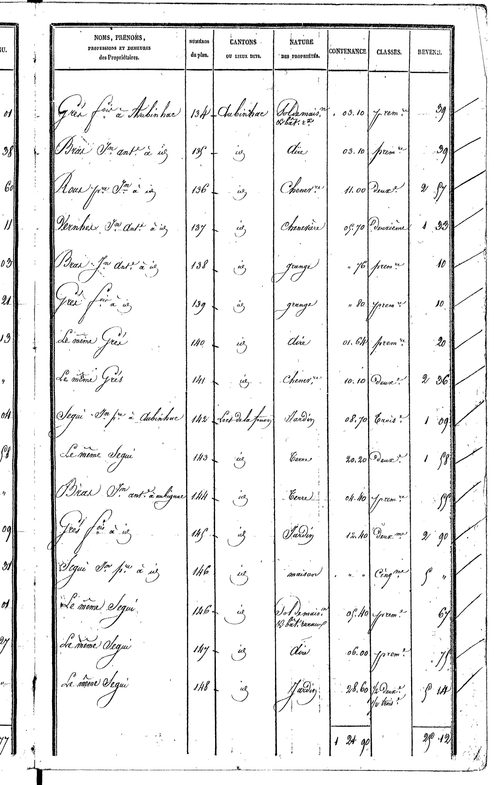 NOMS, PRÉNOMS, PROFESSIONS ET DEMEURES des Propriétaires. NUMÉROS du plan. CANTONS OU LIEUX DITS. NATURE DES PROPRIÉTÉS. CONTENANCE. CLASSES. REVENU.
01 Grés à Aubinhac 134 Aubinhac 03.10 prem.re 39
38 Bras Jn ant.e à id 135 id aire 03.10 prem.re 39
60 Roux pre Jn à id 136 id Chenev.re 11.00 deux.e 2 57
11 Vernhes Jn ant.e à id 137 id Chenevière 05.70 deuxième 1 33
03 Bras Jn ant.e à id 138 id grange " 76 prem.re 10
21 Grés à id 139 id grange " 80 prem.re 10
13 Le même Grés 140 id aire 01.64 prem.re 20
" Le même Grés 141 id Chenev.re 10.10 Deux.e 2 36
04 Segui Jn p.re à Aubinhac 142 Jardin 08.70 Trois.e 1 09
58 Le même Segui 143 id Terre 20.20 Deux.e 1 58
" Bras Jn ant.e 144 id Terre 04.40 prem.re 55
09 Grés à id 145 id Jardin 12.40 Deux.me 2 90
31 Segui Jn p.re à id 146 id maison " " Cinq.me 5 "
01 Le même Segui 146 id 05.40 prem.re 67
27 Le même Segui 147 id aire 06.00 prem.re 75
Le même Segui 148 id Jardin 28.60 5 14
77 1 24 90 25 12